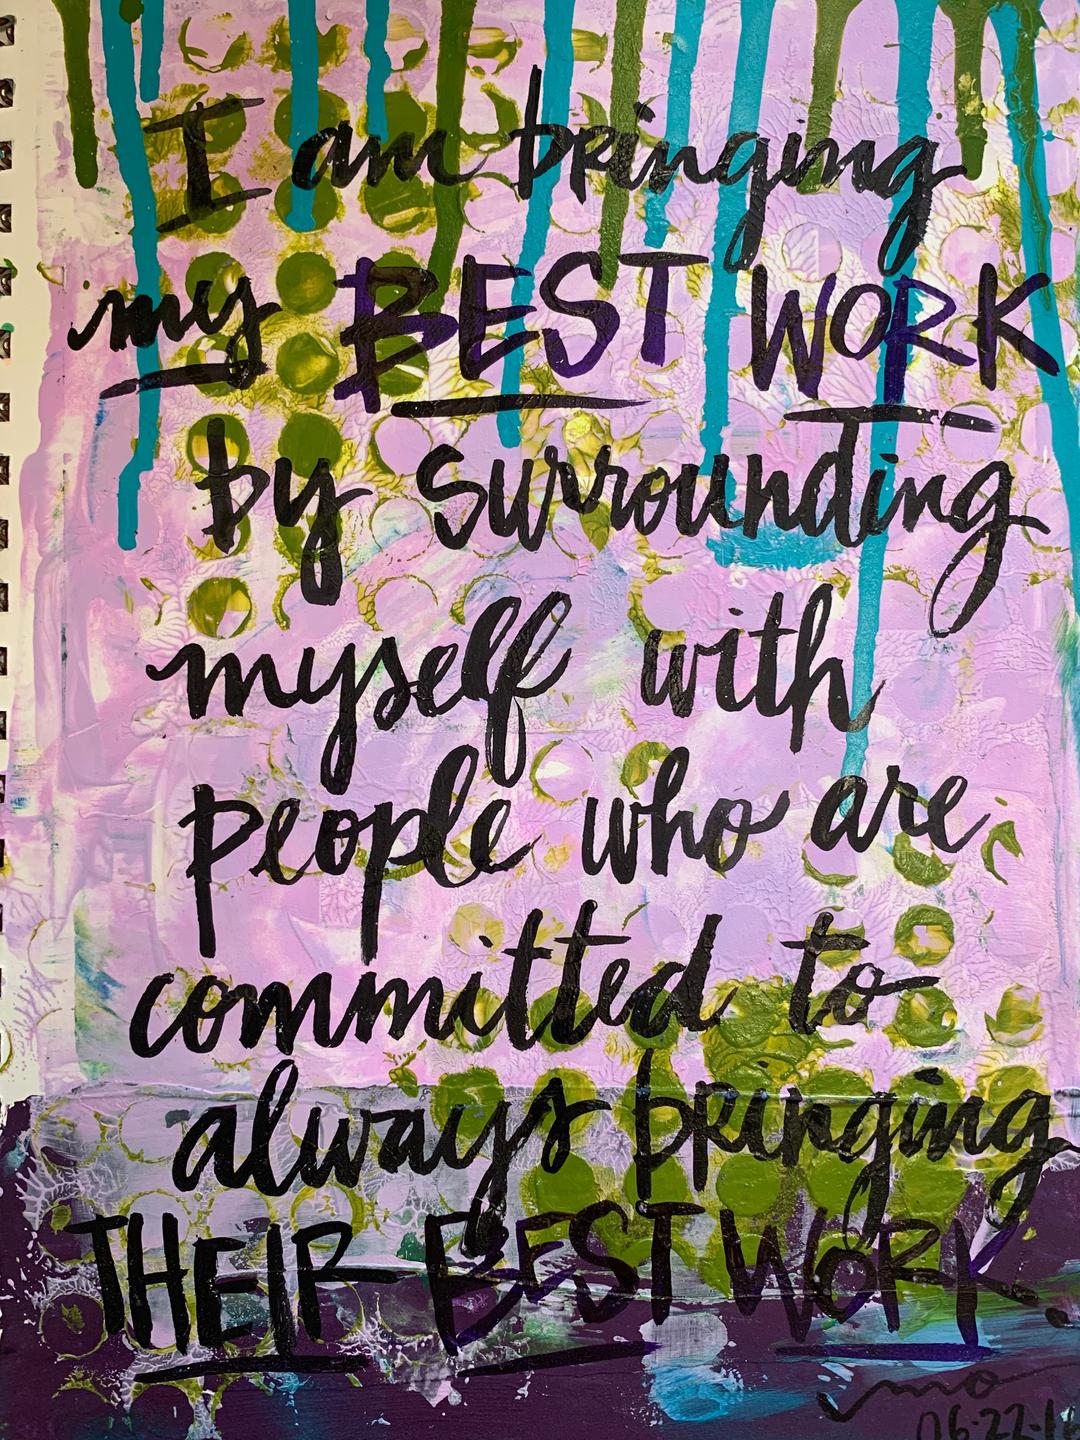 I am bringing
my BEST WORK
by surrounding
myself with
people who are
committed to
always bringing
THEIR BEST WORK.
mo
06-22-16